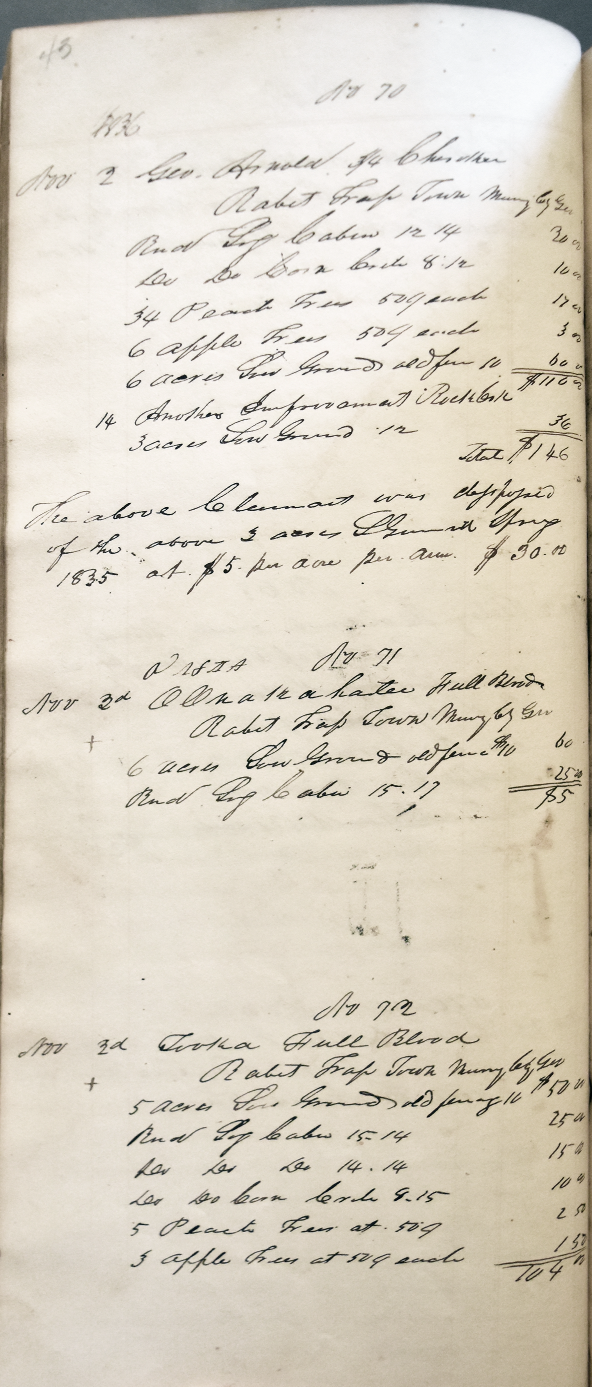 43
No 70
1836
Nov 2 Geo. Arnold 3/4 Cherokee
Rabit Trap Town Murry Cty Geo
Rnd Log Cabin 12 14 20 00
Do Do Corn Crib 8.12 10 00
34 Peach Trees 50¢ each 17 00
6 apple Trees 50¢ each 3 00
6 acres Low Ground old fen 10 60 0
$110 00
14 Another Improvement Rock Crk
3 acres Low Ground 12 36
Total $146
The above Claimant was disposed
of the above 3 acres Spring
1835 at $5 per acre per ann. $30.00
No 71
Nov 3d Full Blood
+ Rabit Trap Town Murry Cty Geo
6 acres Low Ground old fence $10 60
Rnd Log Cabin 15.17 25 00
85
No 72
Nov 3d Tooka Full Blood
+ Rabit Trap Town Murry Cty Geo
5 acres Low Ground old fencg 10 $50 00
Rnd Log Cabin 15-14 25 00
Do Do Do 14.14 15 00
Do Do Corn Crib 8.15 10 00
5 Peach Trees at 50¢ 2 50
3 apple Trees at 50¢ each 1 50
104 00